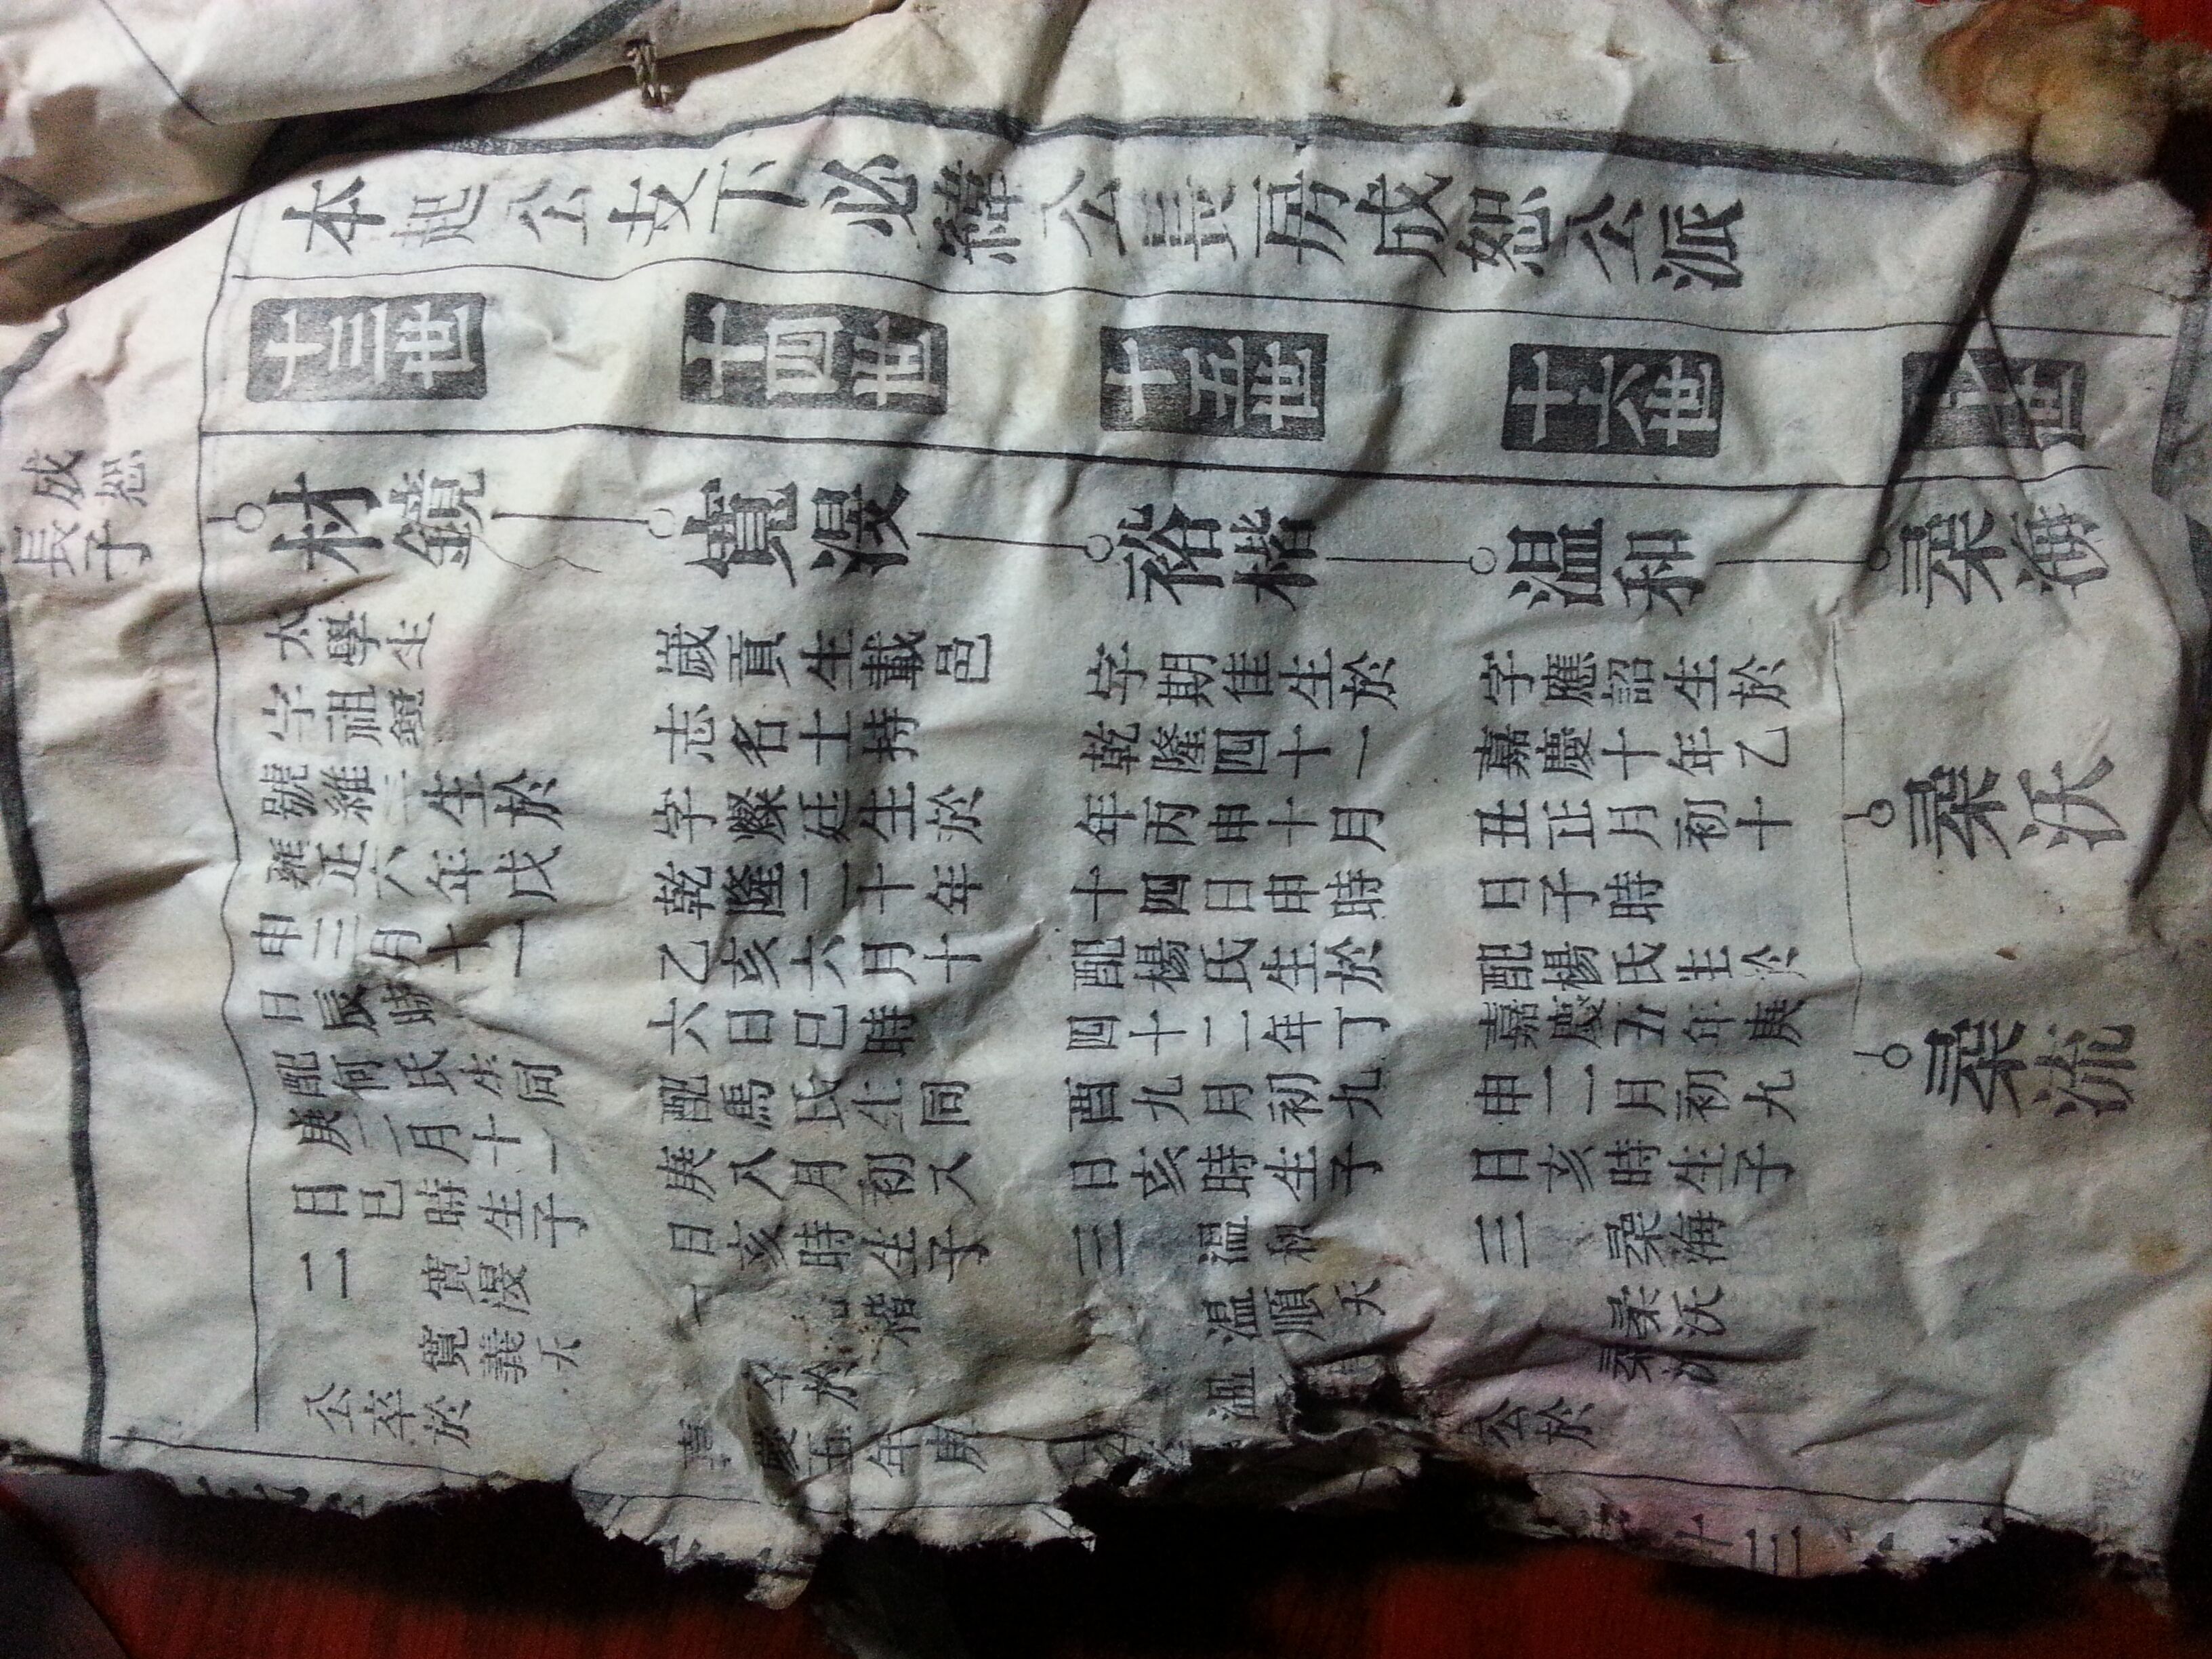 本起公支下必緯公長房成恕公派
十三世
十四世
十五世
十六世
世
成恕
長子
材鏡
太學生
字祖鏡
號雒三生於
雍正六年戊
申三月十一
日辰時
配何氏生同
庚二月十一
日巳時生子
二
寬漫
寬義夭
公卒於
寬漫
歲貢生載邑
志名士持
字燦廷生於
乾隆二十年
乙亥六月十
六日巳時
配馬氏生同
庚八月初八
日亥時生子
一
楷
卒於
嘉慶五年庚
裕楷
字期隹生於
乾隆四十一
年丙申十月
十四日申時
配楊氏生於
四十二年丁
酉九月初九
日亥時生子
三
温和
温順夭
温
温和
字應詔生於
嘉慶十年乙
丑正月初十
日子時
配楊氏生於
嘉慶五年庚
申二月初九
日亥時生子
三
桑海
桑沃
桑流
公於
桑海
桑沃
桑流